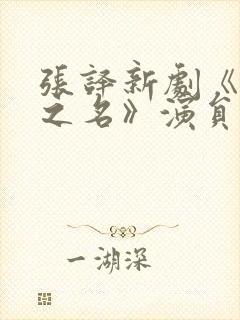 張譯新劇《
之名》演員
一湖深